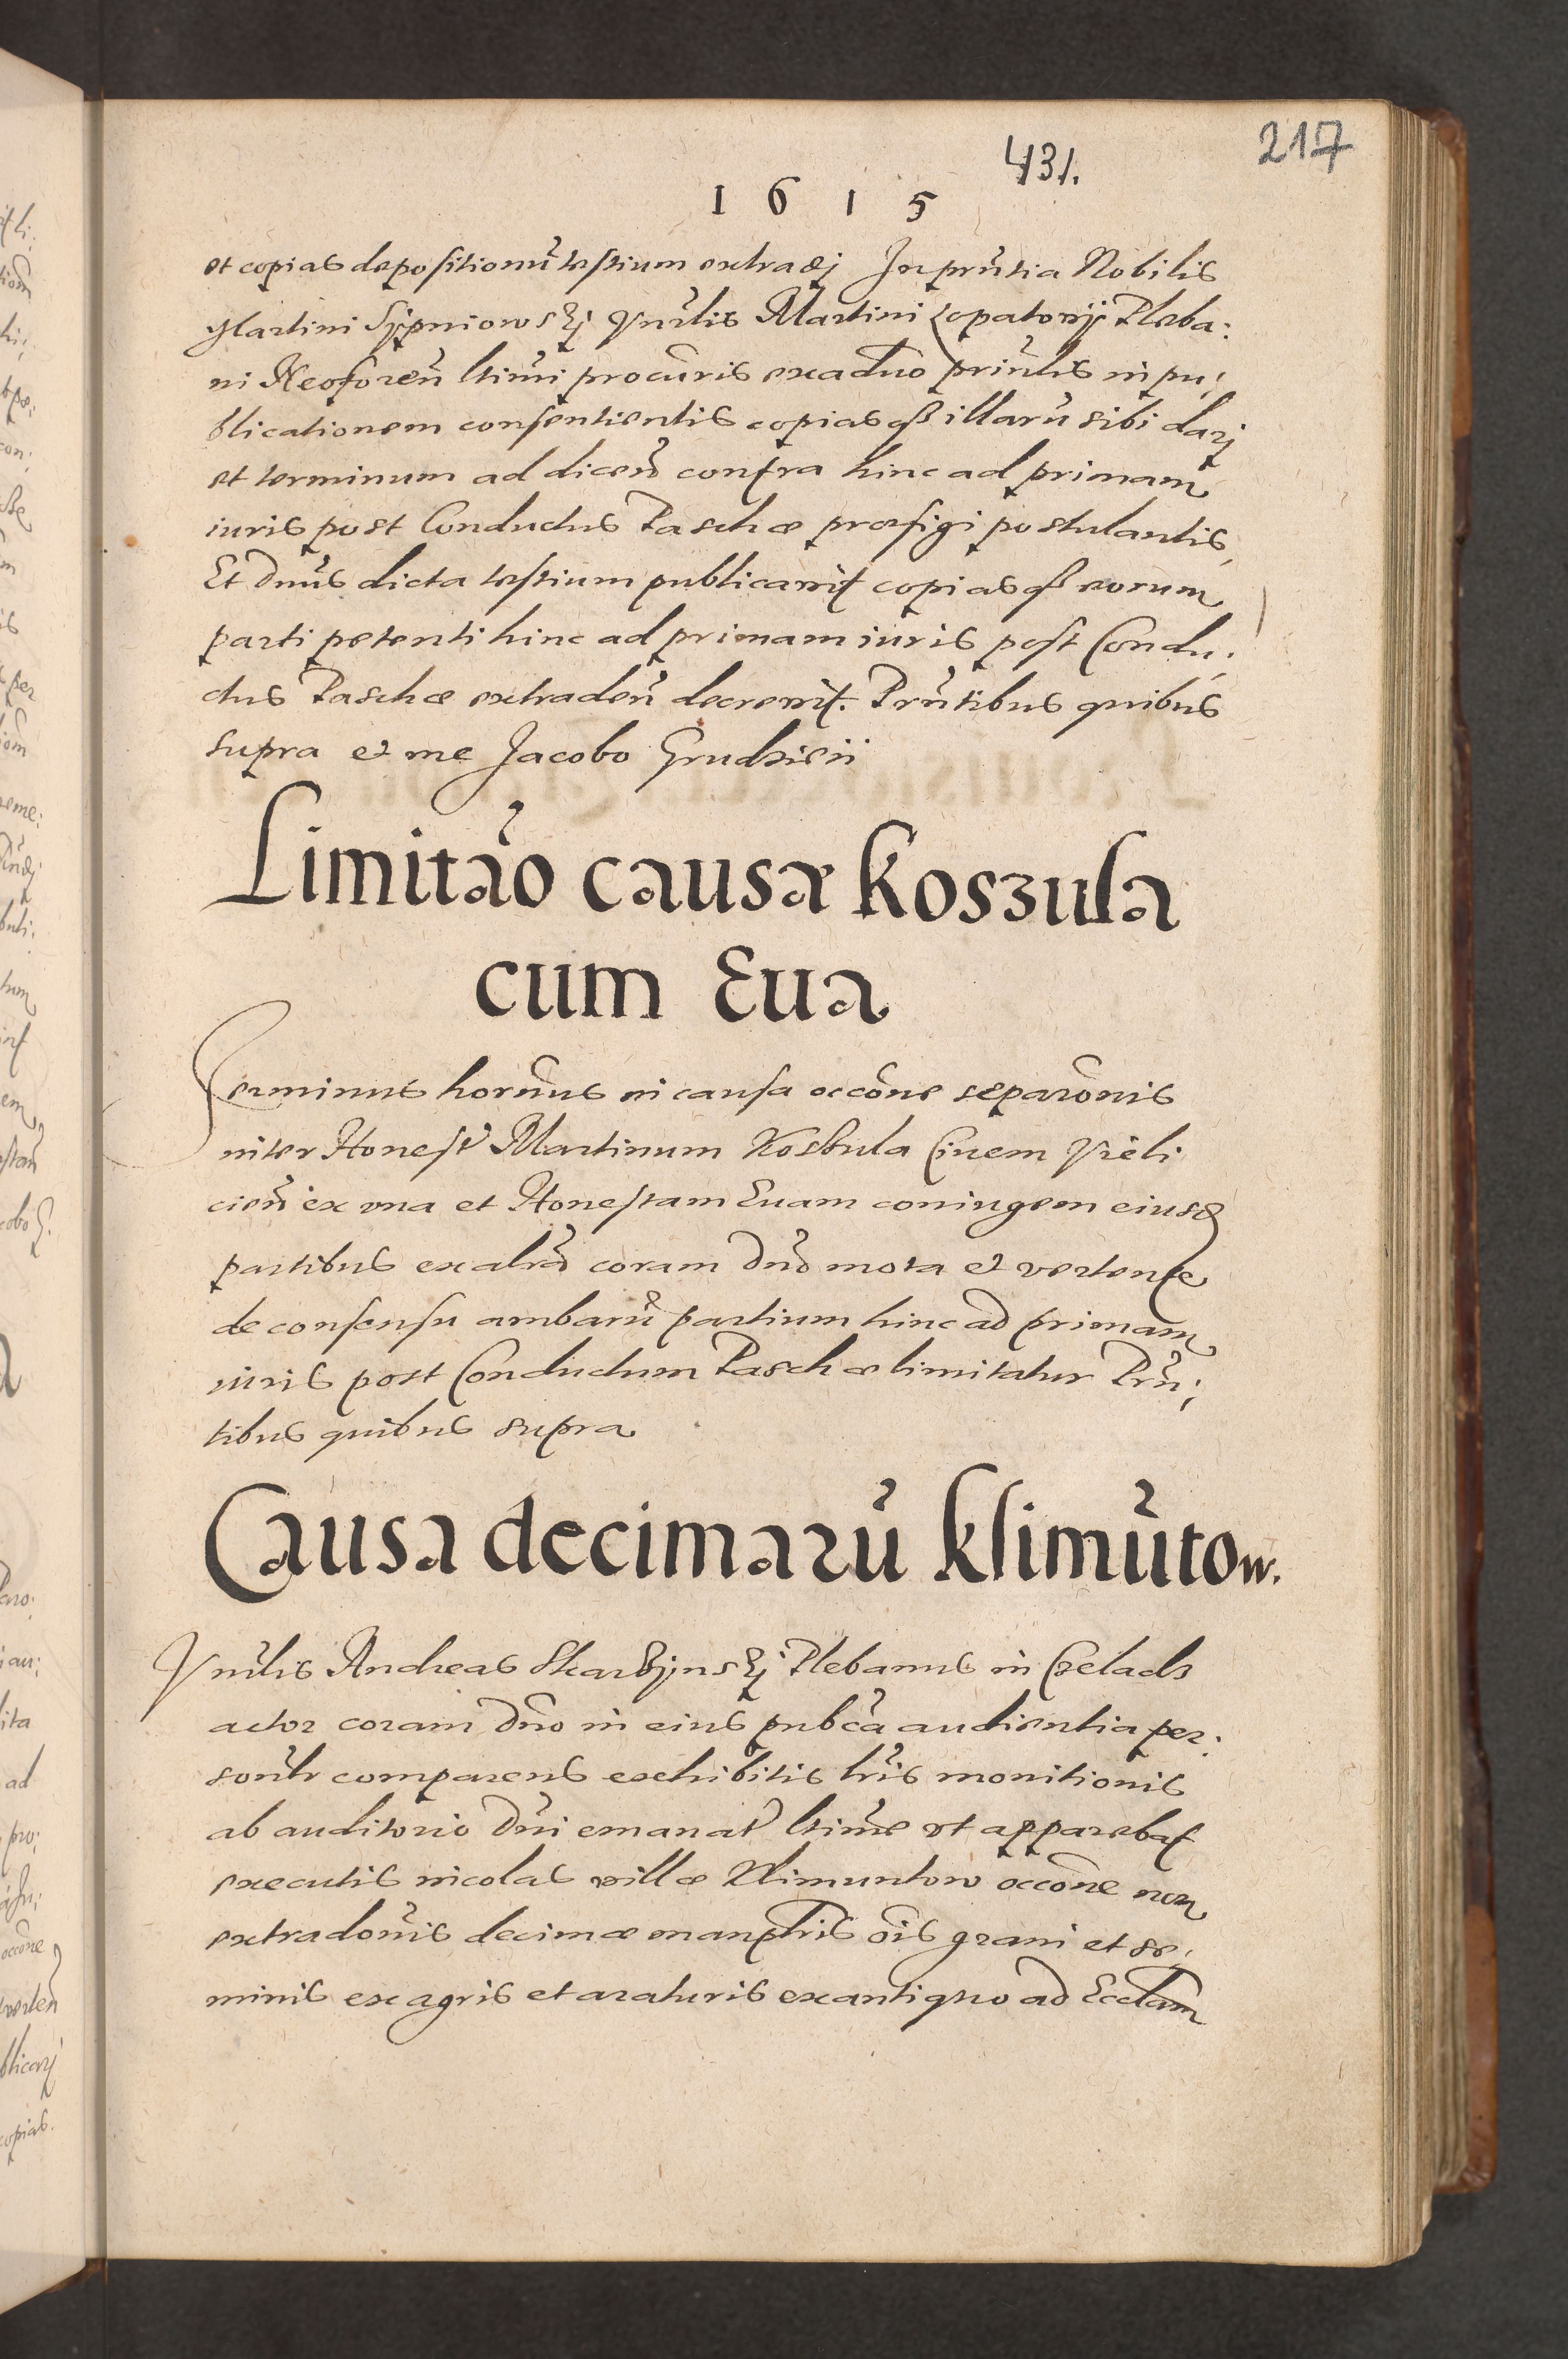 217
431.
1 6 1 5
et copias depositionũ testium extradj In pn̄tia Nobilis
Martini Sypniowskj Vn̄rlis Martini Lopatowij Pleba:
ni Neoforeñ ltimi procũris ex aduo prinlis in pu:
blicationem consentientis copias qꝫ illarũ sibi darj
et terminum ad dicend̃ contra hinc ad primam
iuris post Conductus Paschæ præfigi postulantis
Et Dnũs dicta testium publicavit copias qꝫ eorum
parti petenti hinc ad primam iuris post Condu:
ctus Paschæ extradeñ decrevit. Prñtibus quibus
supra et me Jacobo Grudzień
Limitaõ causæ Koszula
cum Eua
Terminus hornũs in causa occõne separõnis
inter Honest̃ Martinum Koszula Civem Vieli
cieñ ex vna et Honestam Euam coniugem eiusd̃
partibus ex altrã coram Dnõ mota et vertente
de consensu ambarũ partium hinc ad primam
iuris post Conductum Paschæ limitatur Prñ:
tibus quibus supra
Causa decimarũ Klimũtow.
Vnr̃lis Andreas Skarbynskj Plebanus in Czeladz
actor coram Dnõ in eius pubcã audientia per:
sonlr̃ comparens exhibitis lrĩs monitionis
ab auditorio Dnĩ emanat̃ ltimẽ vt apparebat
executis incolas villæ Klimuntow occõne non
extradõnis decimæ manplĩs oĩs grani et se:
minis ex agris et araturis ex antiquo ad Ecclam̃